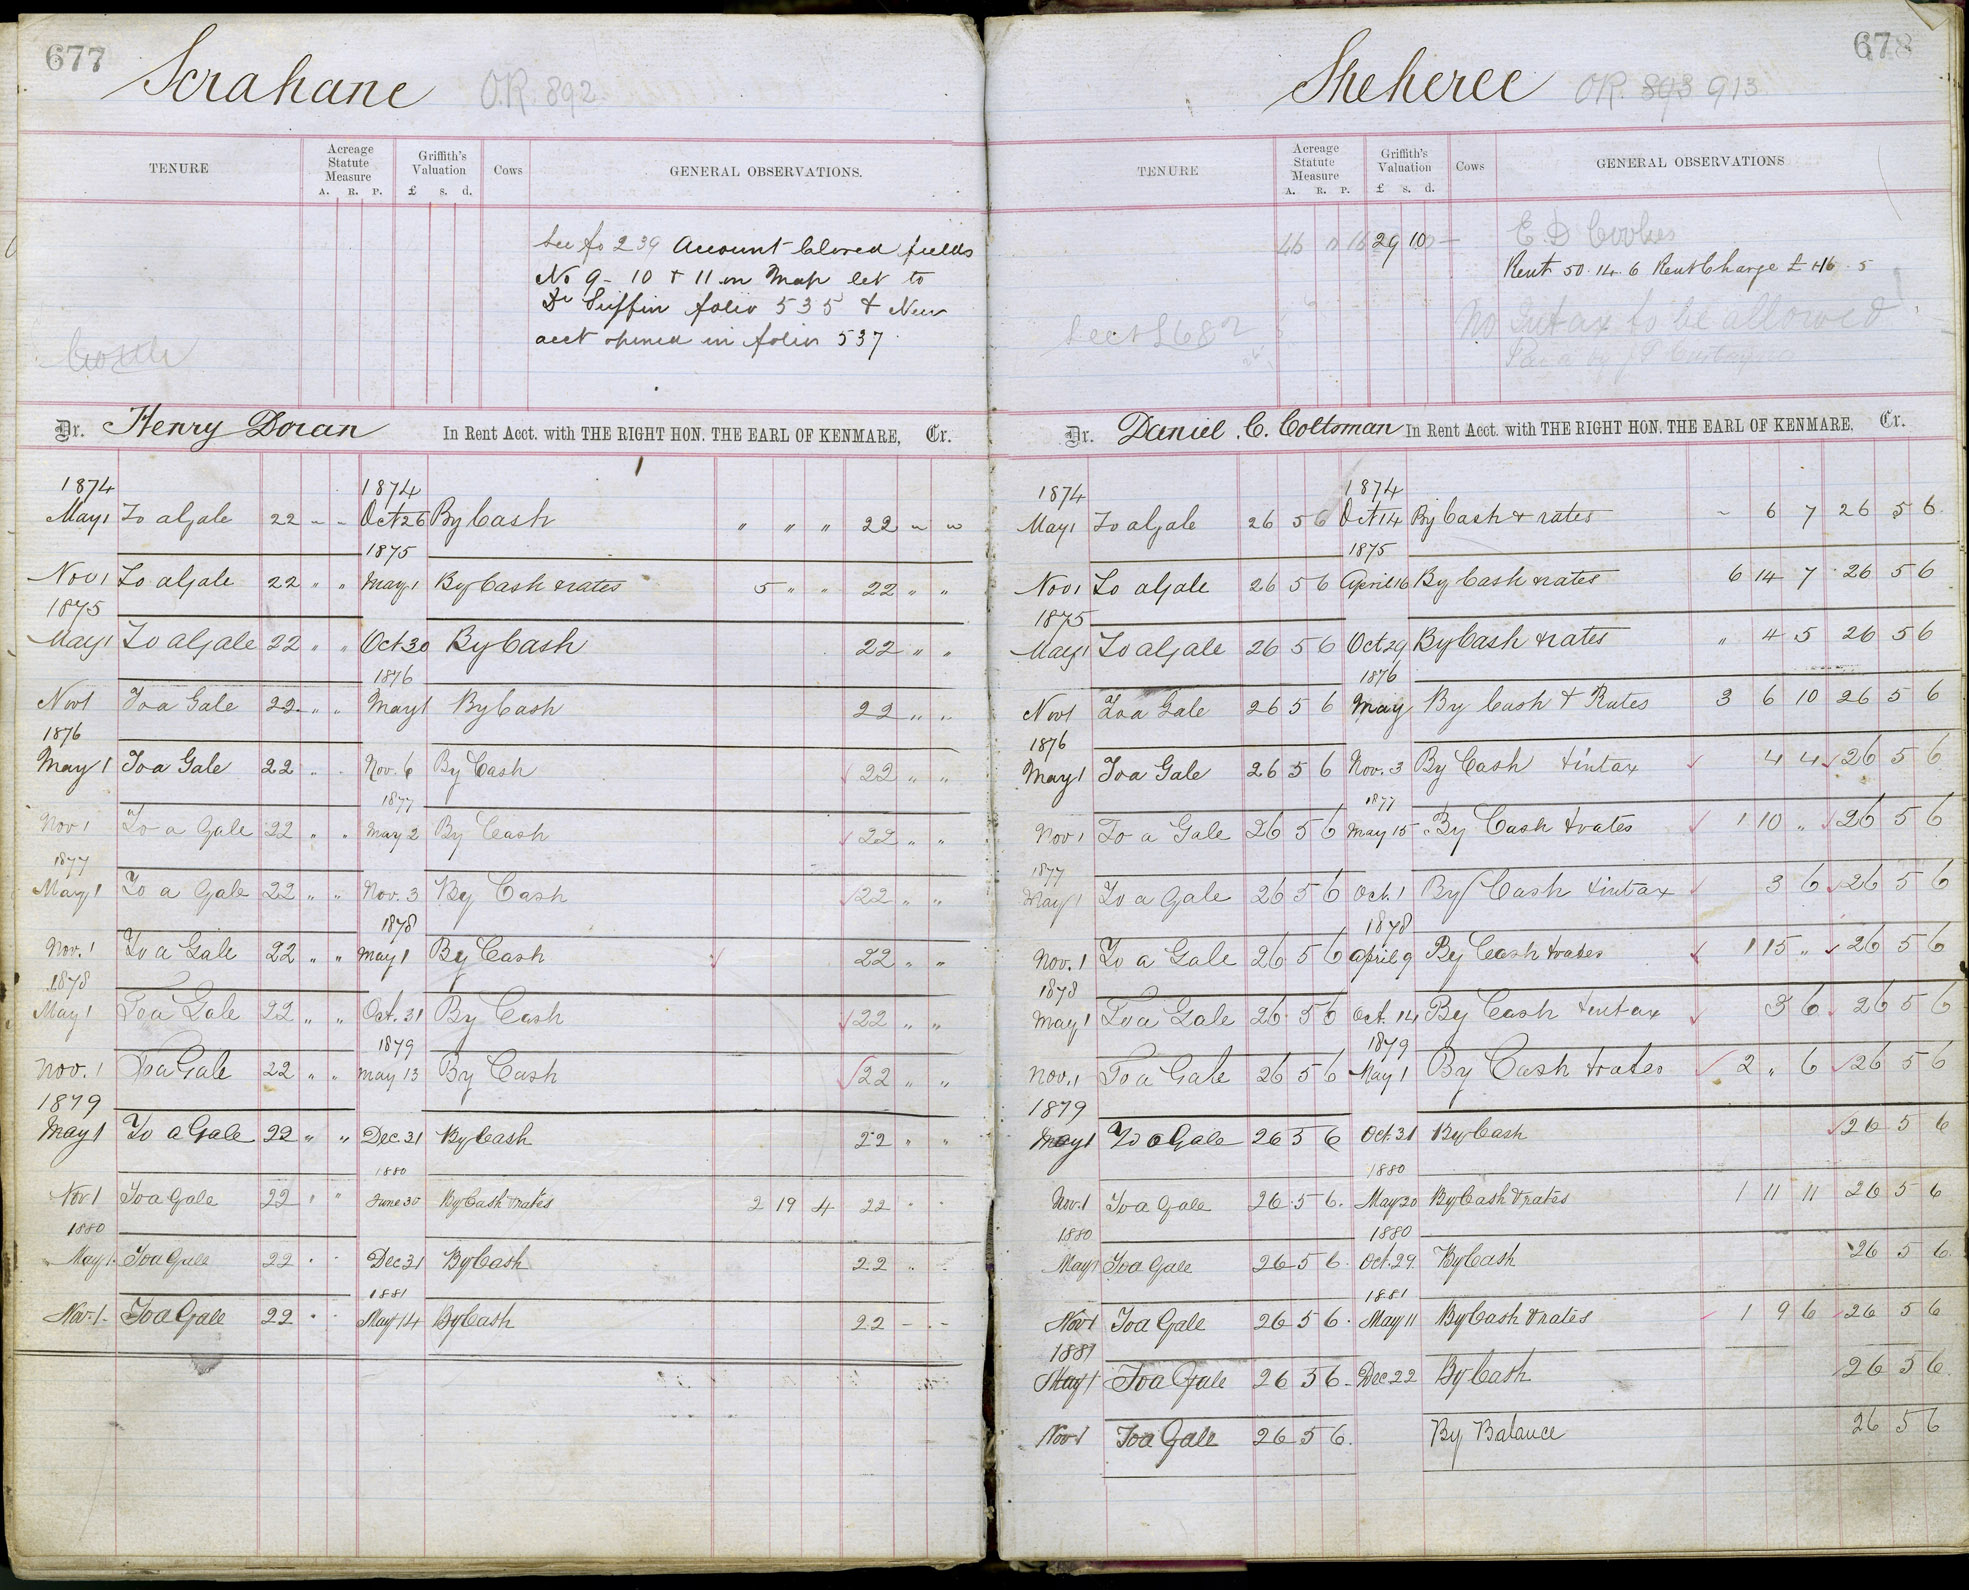 677
Scrahane O.R. 892
TENURE
Acreage Statute Measure
A. R. P.
Griffith's Valuation
£ s. d.
Cows
GENERAL OBSERVATIONS.
See fo 239 Account Closed fields
No 9 - 10 + 11 on Map let to
Dr Griffin folio 535 & New
acct opened in folio 537.
Dr. Henry Doran In Rent Acct. with THE RIGHT HON. THE EARL OF KENMARE, Cr.
1874 1874
May 1 To a Gale 22 " " Oct 26 By Cash " " " 22 " "
1875
Nov 1 To a Gale 22 " " May 1 By Cash & rates 5 " " 22 " "
1875
May 1 To a Gale 22 " " Oct 30 By Cash 22 " "
1876
Nov 1 To a Gale 22 " " May 1 By Cash 22 " "
1876
May 1 To a Gale 22 " " Nov. 6 By Cash 22 " "
1877
Nov 1 To a Gale 22 " " May 2 By Cash 22 " "
1877
May 1 To a Gale 22 " " Nov. 3 By Cash 22 " "
1878
Nov. 1 To a Gale 22 " " May 1 By Cash 22 " "
1878
May 1 To a Gale 22 " " Oct. 31 By Cash 22 " "
1879
Nov. 1 To a Gale 22 " " May 13 By Cash 22 " "
1879
May 1 To a Gale 22 " " Dec 31 By Cash 22 " "
1880
Nov 1 To a Gale 22 " " June 30 By Cash & rates 2 19 4 22 " "
1880
May 1 To a Gale 22 " " Dec 31 By Cash 22 " "
1881
Nov. 1 To a Gale 22 " " May 14 By Cash 22 - -
678
Sheheree O.R. 893 913
TENURE
Acreage Statute Measure
A. R. P.
Griffith's Valuation
£ s. d.
Cows
GENERAL OBSERVATIONS
46 0 16 29 10 -
Rent 50.14.6 Rent Charge £
No Intax to be allowed
Dr. Daniel C. Coltsman In Rent Acct. with THE RIGHT HON. THE EARL OF KENMARE, Cr.
1874 1874
May 1 To a Gale 26 5 6 Oct 14 By Cash & rates " 6 7 26 5 6
1875
Nov 1 To a Gale 26 5 6 April 16 By Cash & rates 6 14 7 26 5 6
1875
May 1 To a Gale 26 5 6 Oct 29 By Cash & rates " 4 5 26 5 6
1876
Nov 1 To a Gale 26 5 6 May By Cash & Rates 3 6 10 26 5 6
1876
May 1 To a Gale 26 5 6 Nov. 3 By Cash & intax 4 4 26 5 6
1877
Nov 1 To a Gale 26 5 6 May 15 By Cash & rates 1 10 " 26 5 6
1877
May 1 To a Gale 26 5 6 Oct. 1 By Cash & intax 3 6 26 5 6
1878
Nov. 1 To a Gale 26 5 6 April 9 By Cash & rates 1 15 " 26 5 6
1878
May 1 To a Gale 26 5 6 Oct. 14 By Cash & intax 3 6 26 5 6
1879
Nov. 1 To a Gale 26 5 6 May 1 By Cash & rates 2 " 6 26 5 6
1879
May 1 To a Gale 26 5 6 Oct. 31 By Cash 26 5 6
1880
Nov. 1 To a Gale 26 5 6 May 20 By Cash & rates 1 11 11 26 5 6
1880 1880
May 1 To a Gale 26 5 6 Oct. 29 By Cash 26 5 6
1881
Nov 1 To a Gale 26 5 6 May 11 By Cash & rates 1 9 6 26 5 6
1881
May 1 To a Gale 26 5 6 Dec 22 By Cash 26 5 6
Nov 1 To a Gale 26 5 6 By Balance 26 5 6